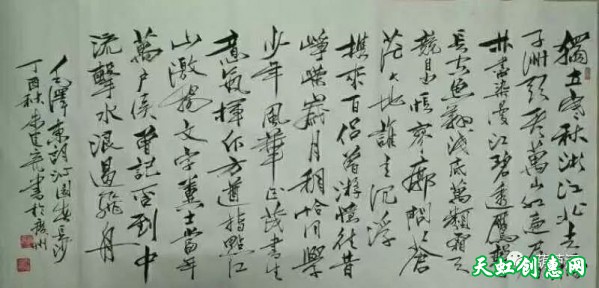 獨立寒秋湘江北去
子洲頭看萬山紅遍層
林盡染漫江碧透鷹擊
長空魚翔淺底萬類霜天
競自由悵寥廓問蒼
茫大地誰主沉浮
攜來百侣曾游憶往昔
崢嶸歲月稠恰同學
少年風華正茂書生
意氣揮斥方遒指點江
山激揚文字糞土當年
萬户侯曾記否到中
流擊水浪遏飛舟
毛澤東詞沁園春長沙
丁酉秋 書於 州
天虹创意网